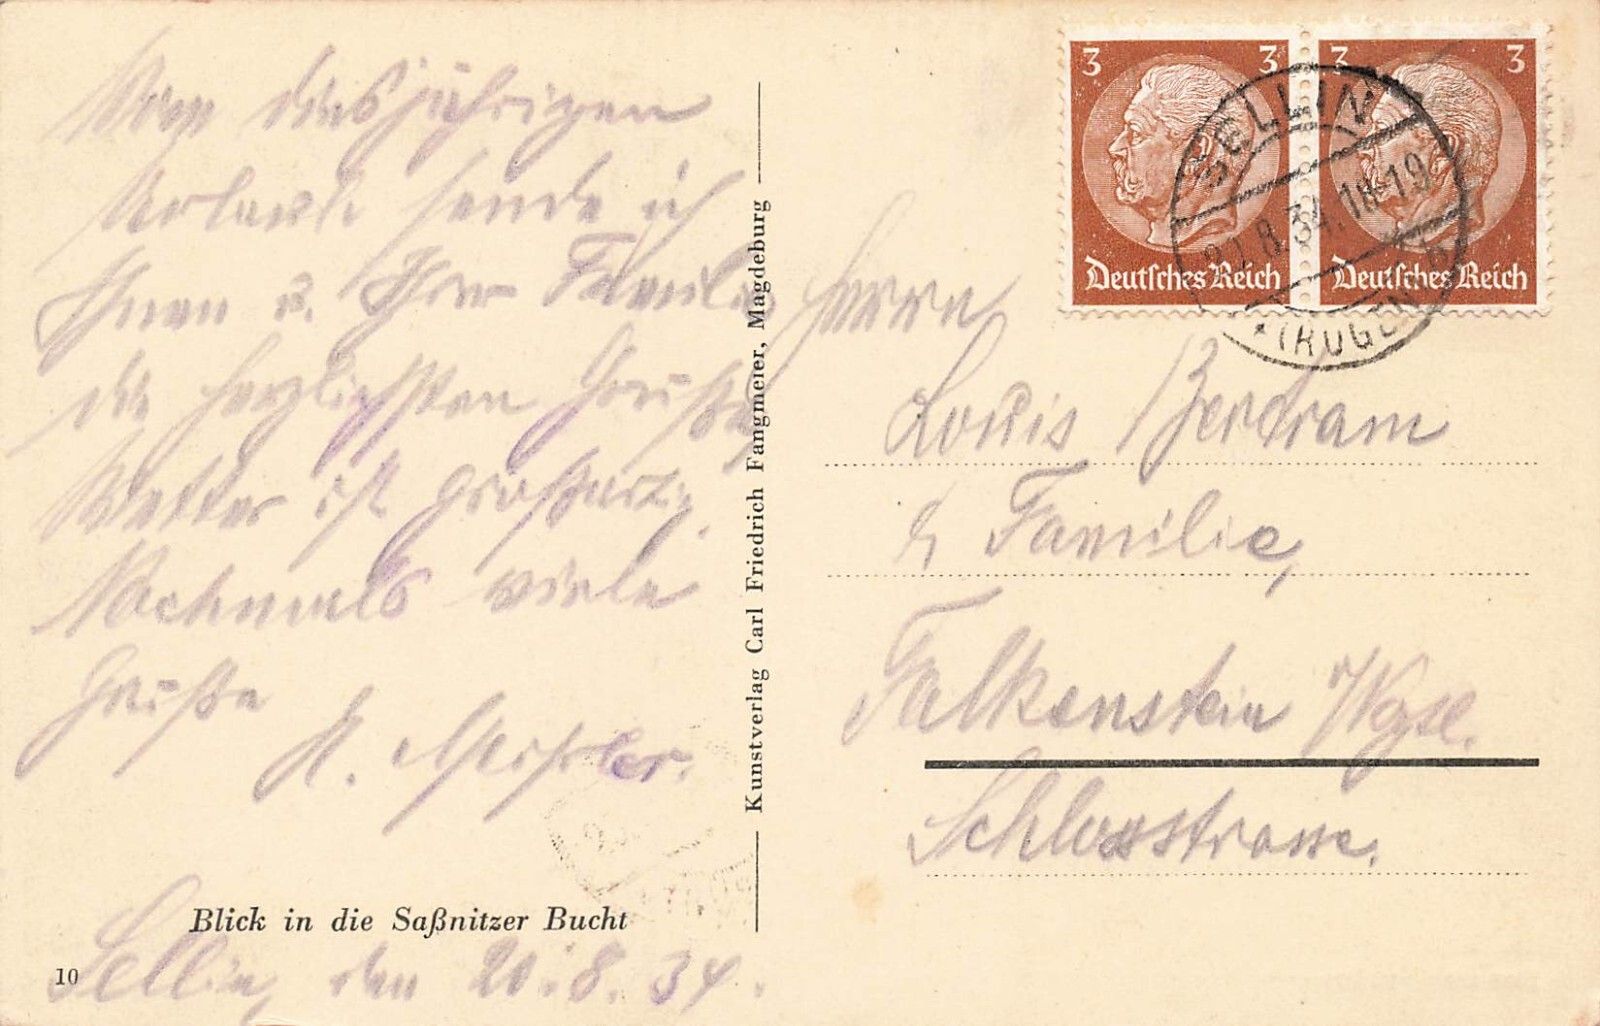 Vom diesjährigen
Urlaub sende ich
Ihnen u. Ihrer Familie
die herzlichsten Grüße.
Wetter ist großartig.
Nochmals viele
Grüße
Blick in die Saßnitzer Bucht
10
Sellin, den 20.8.34.
Kunstverlag Carl Friedrich Fangmeier, Magdeburg
3 3
Deutsches Reich
3 3
Deutsches Reich
SELLIN
20.8.34. 18-19
* (RÜGEN)
Herrn
Louis Bertram
& Familie,
Falkenstein i/Vogtl.
Schlossstrasse.